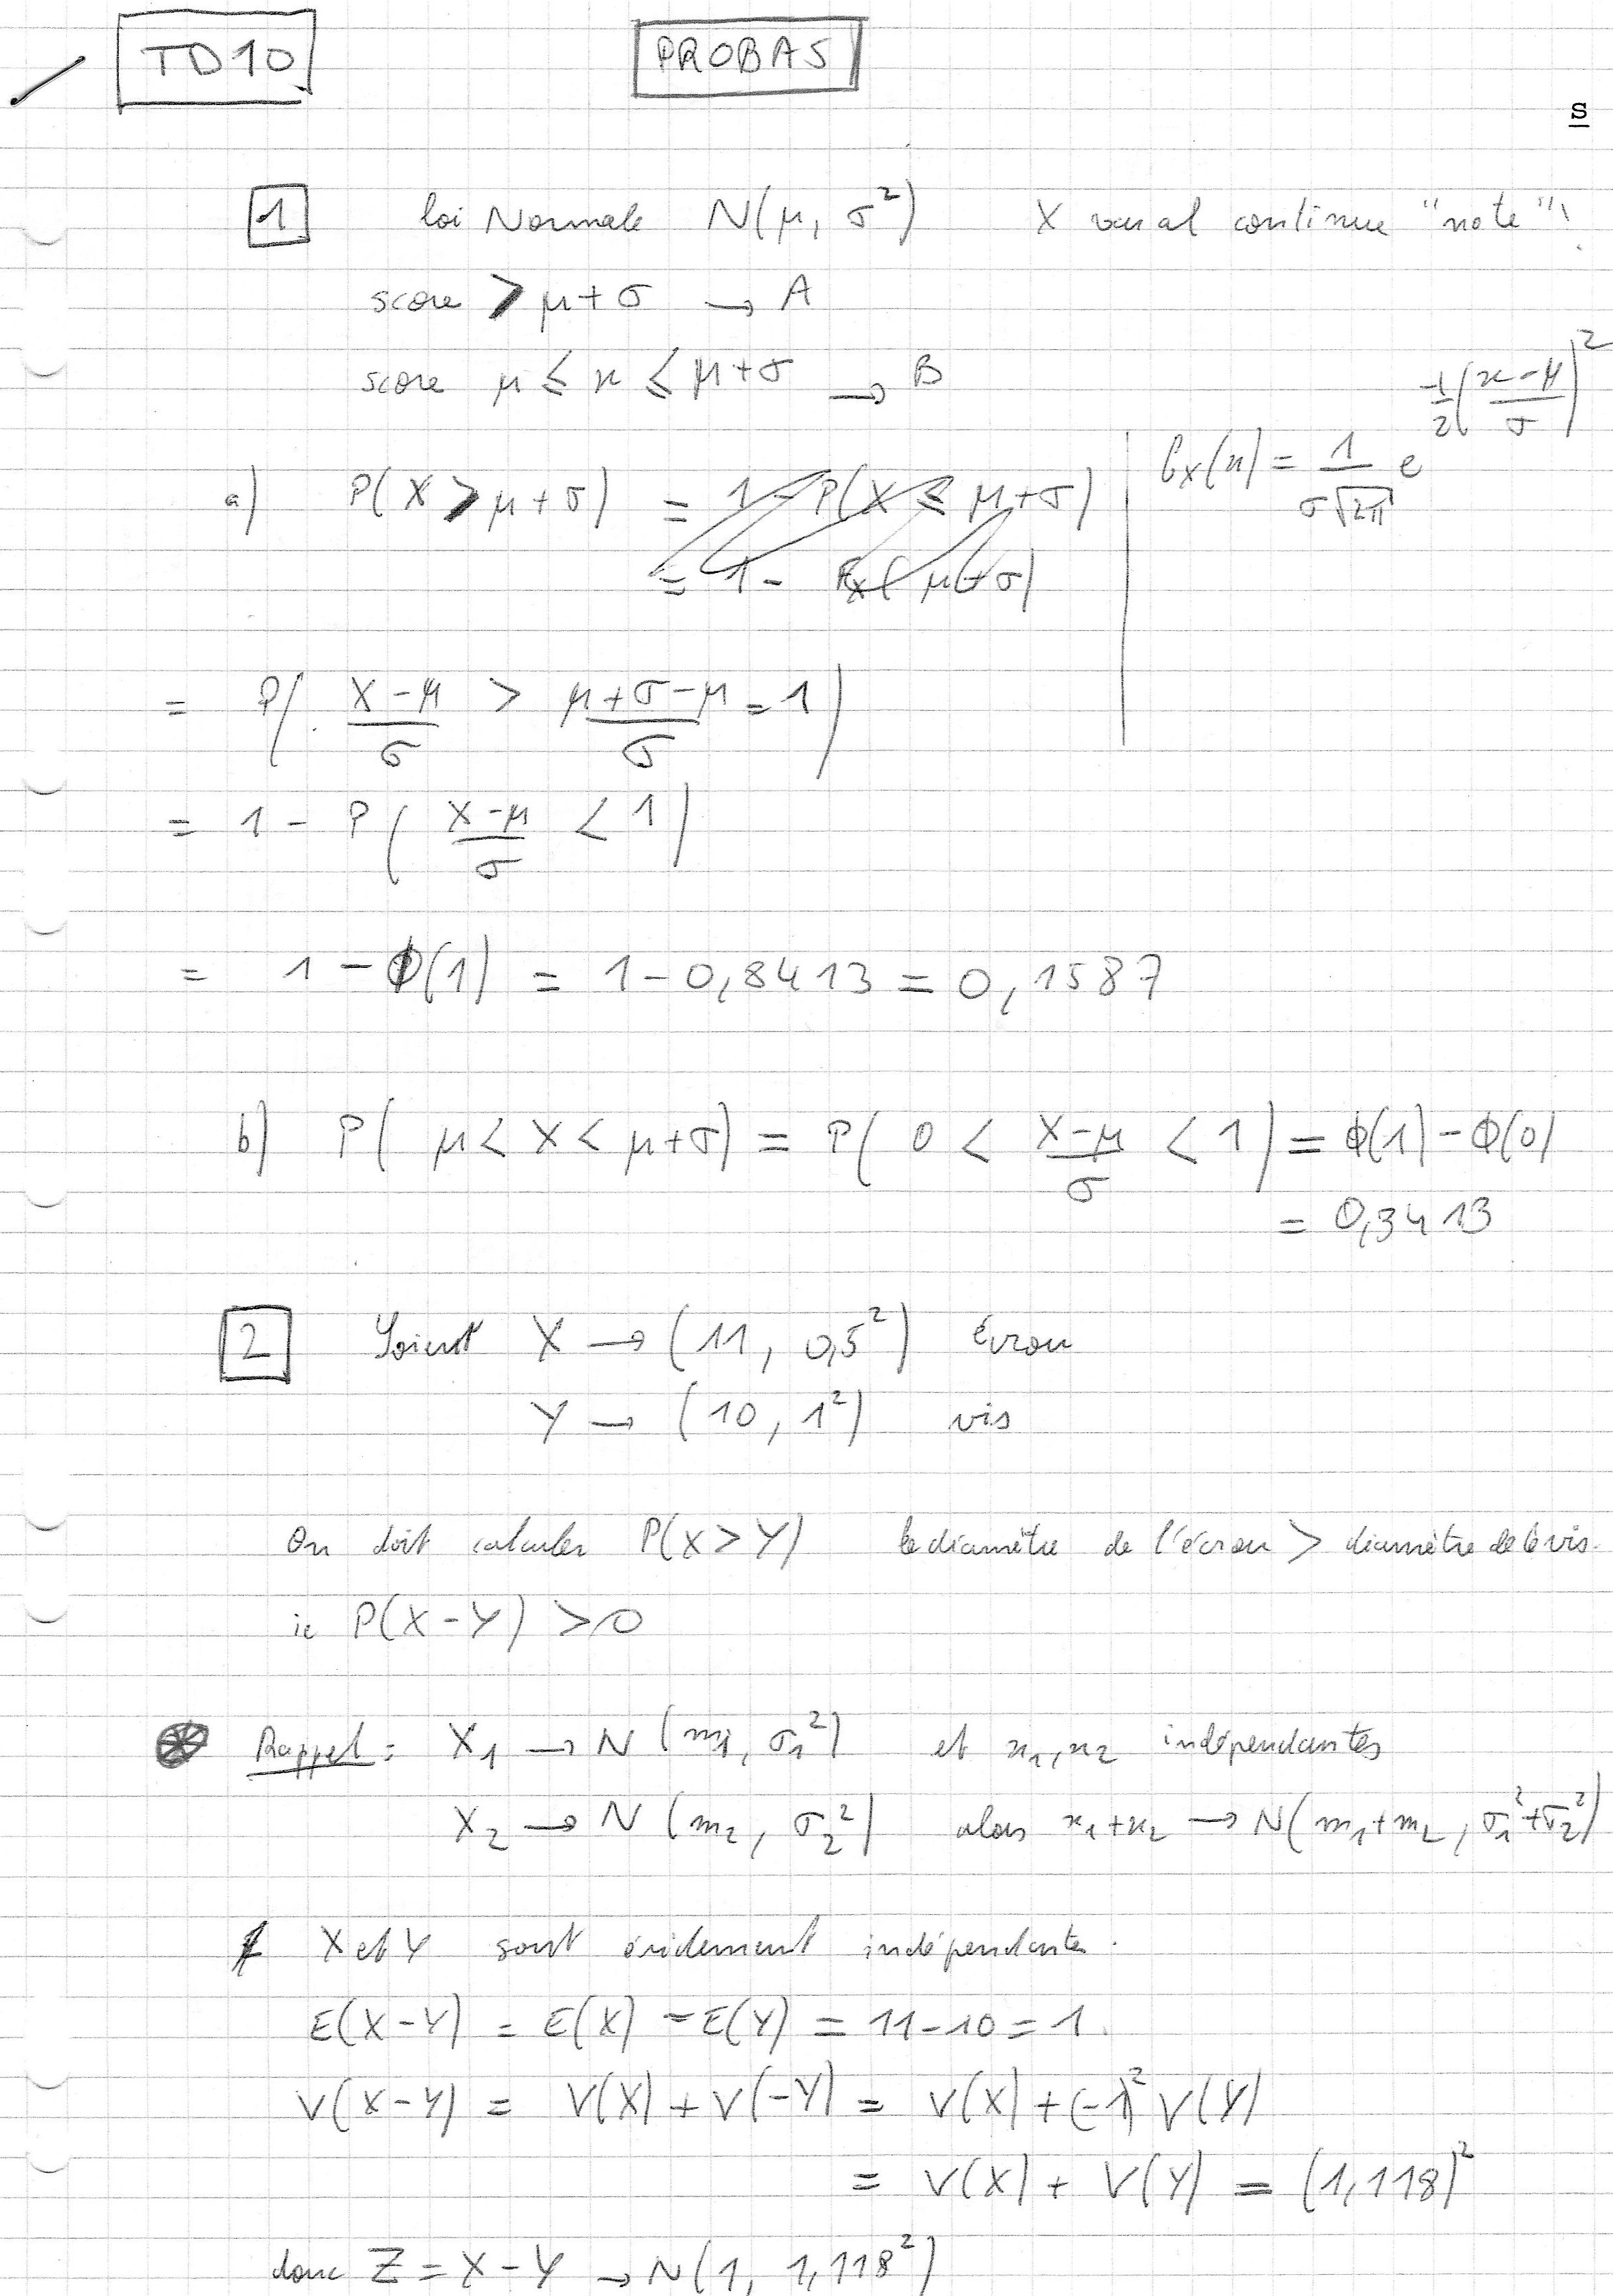 TD10 PROBAS
s
1 loi Normale N(μ, σ²) X var al continue "note"
score > μ+σ → A
score μ ≤ x ≤ μ+σ → B
a) P(X > μ+σ) = 1 - P(X ≤ μ+σ) | fx(x) = 1/(σ√2π) e^(-1/2((x-μ)/σ)²)
= 1 - Fx(μ+σ)
= P( (X-μ)/σ > (μ+σ-μ)/σ = 1 )
= 1 - P( (X-μ)/σ < 1 )
= 1 - Φ(1) = 1 - 0,8413 = 0,1587
b) P( μ < X < μ+σ) = P( 0 < (X-μ)/σ < 1 ) = Φ(1) - Φ(0)
= 0,3413
2 Soient X → (11, 0,5²) écrou
Y → (10, 1²) vis
On doit calculer P(X > Y) le diamètre de l'écrou > diamètre de la vis.
ie P(X-Y) > 0
Rappel : X₁ → N (m₁, σ₁²) et x₁, x₂ indépendantes
X₂ → N (m₂, σ₂²) alors x₁+x₂ → N(m₁+m₂, σ₁²+σ₂²)
X et Y sont évidement indépendantes.
E(X-Y) = E(X) - E(Y) = 11-10 = 1.
V(X-Y) = V(X) + V(-Y) = V(X) + (-1)² V(Y)
= V(X) + V(Y) = (1,118)²
donc Z = X-Y → N(1, 1,118²)